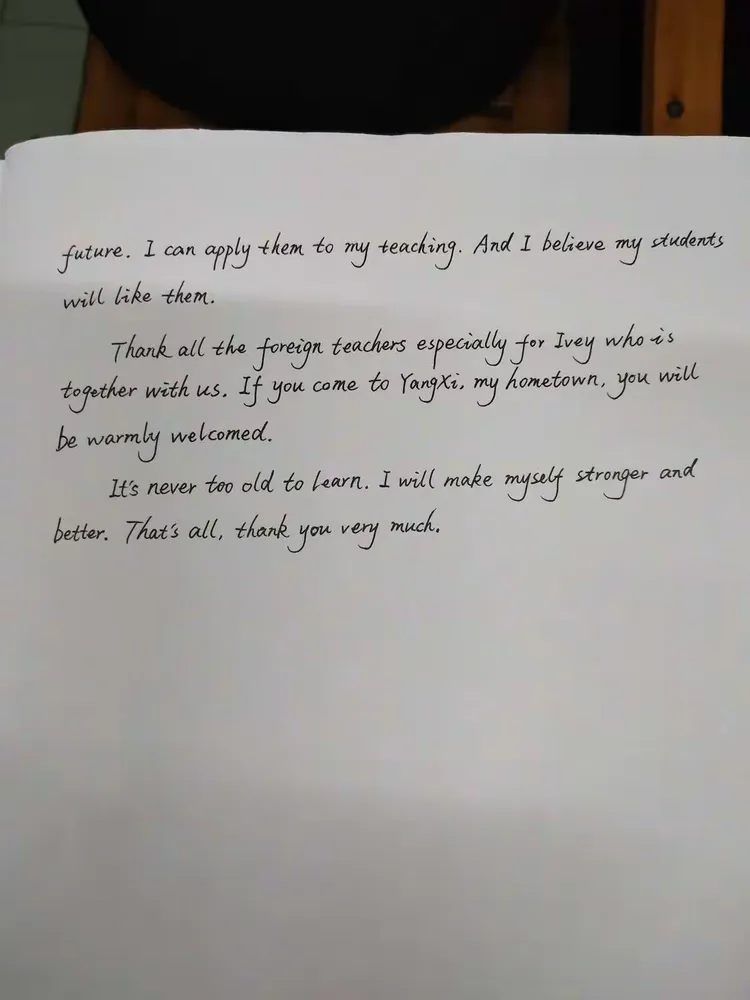 future. I can apply them to my teaching. And I believe my students
will like them.
Thank all the foreign teachers especially for Ivey who is
together with us. If you come to YangXi, my hometown, you will
be warmly welcomed.
It's never too old to learn. I will make myself stronger and
better. That's all, thank you very much.